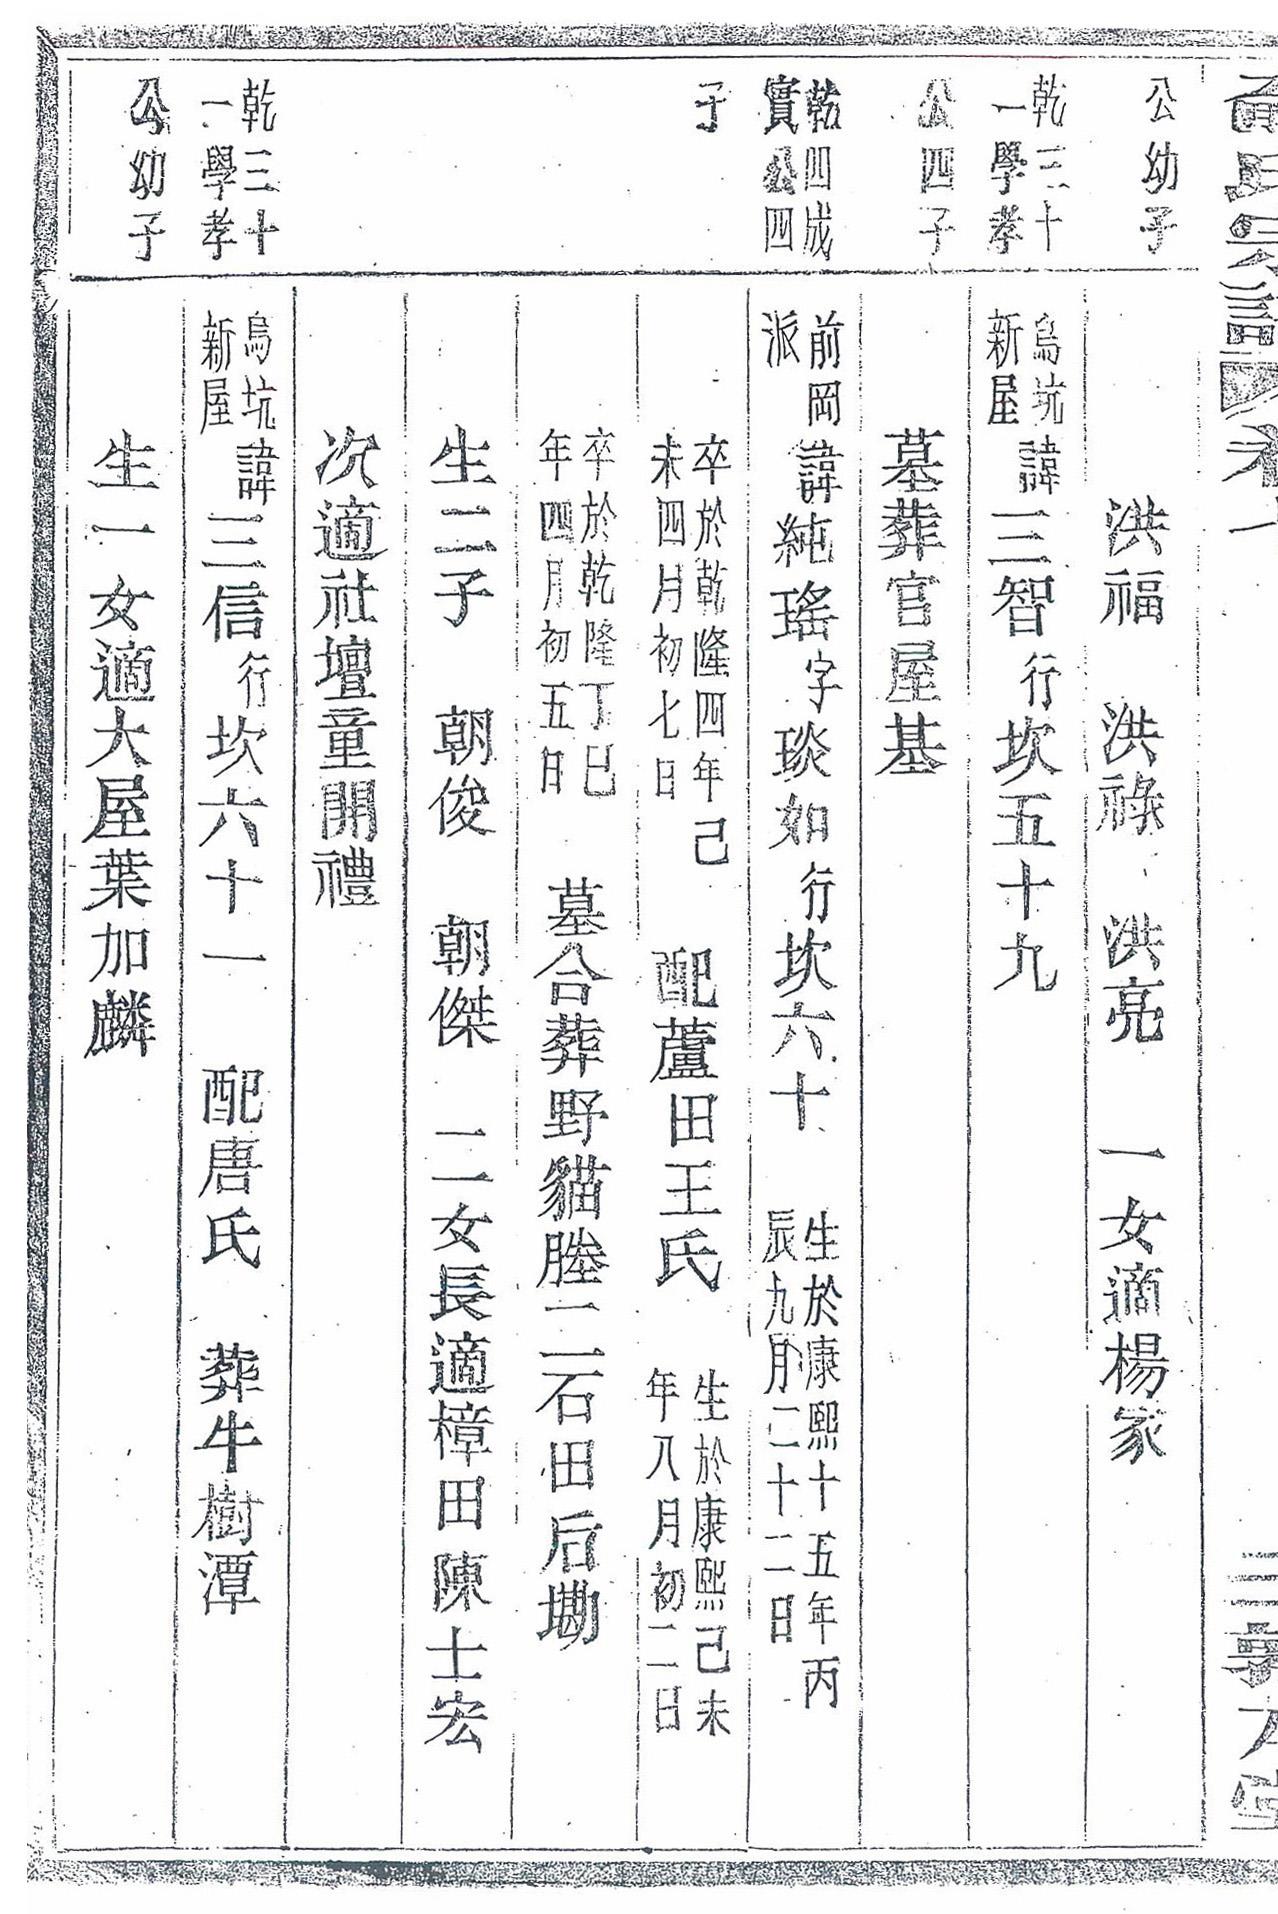 氏宗譜 卷一
公幼子
洪福 洪祿 洪亮 一女適楊家
乾三十
一學孝
烏坑
新屋
諱三智行坎五十九
公四子
墓葬官屋基
乾四成
實公四
前岡
派
諱純瑤字琰如行坎六十
生於康熙十五年丙
辰九月二十二日
子
卒於乾隆四年己
未四月初七日
配蘆田王氏
生於康熙己未
年八月初二日
卒於乾隆丁巳
年四月初五日
墓合葬野貓塍二石田后墈
生二子 朝俊 朝傑 二女長適樟田陳士宏
次適社壇童開禮
乾三十
一學孝
烏坑
新屋
諱三信行坎六十一 配唐氏 葬牛樹潭
公幼子
生一女適大屋葉加麟